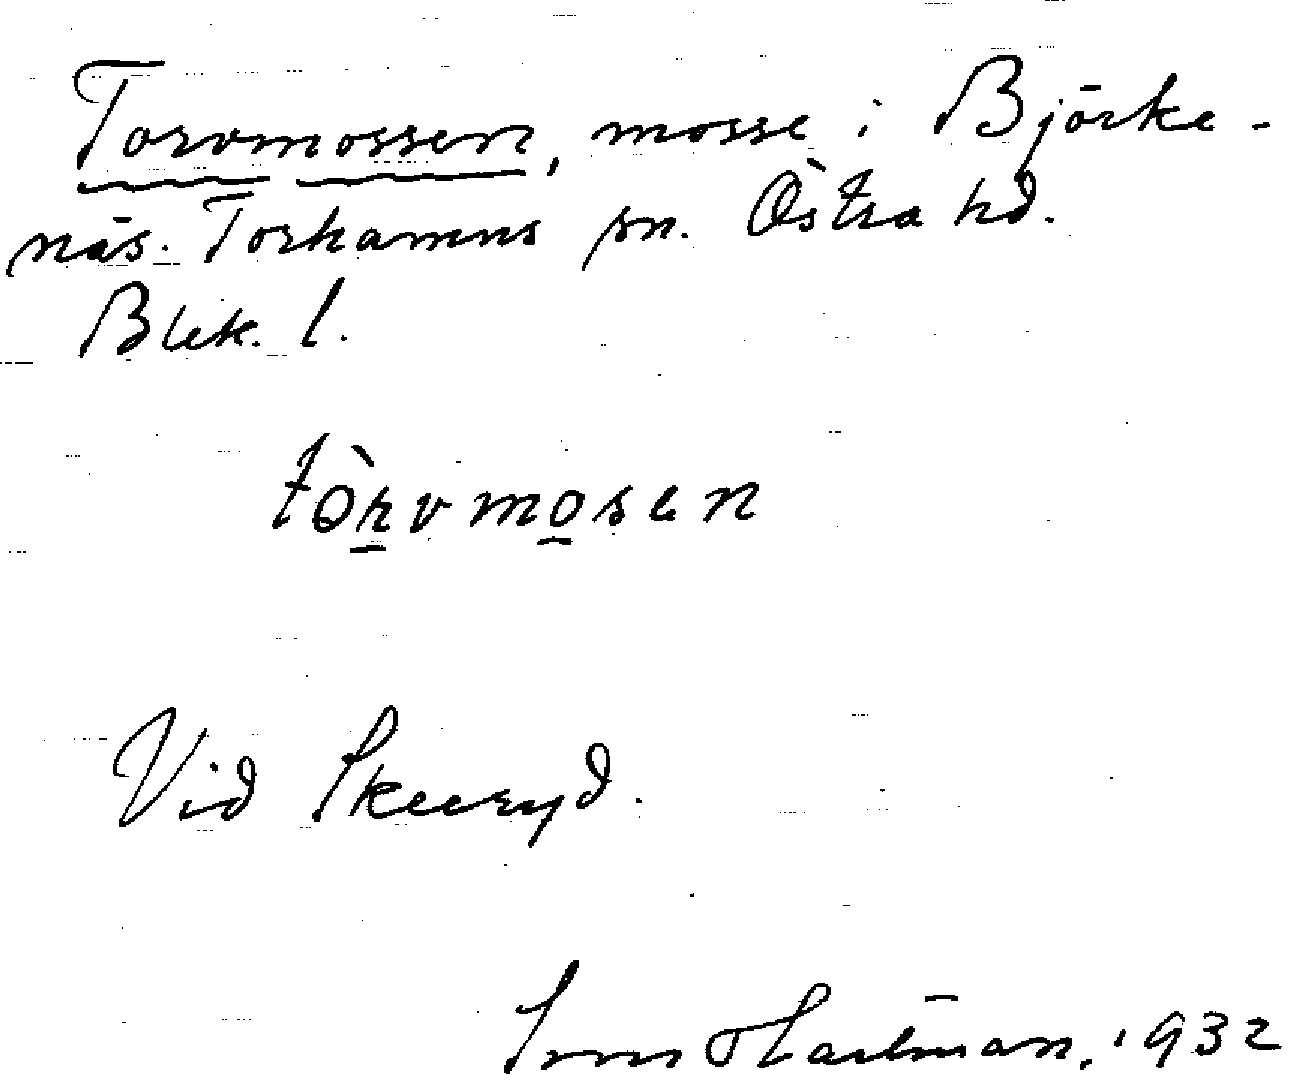 Torvmossen, mosse i Björke-
näs. Torhamns sn. Östra hd.
Blek. l.
tòrvmosen
Vid Skeeryd.
Hartman, 1932